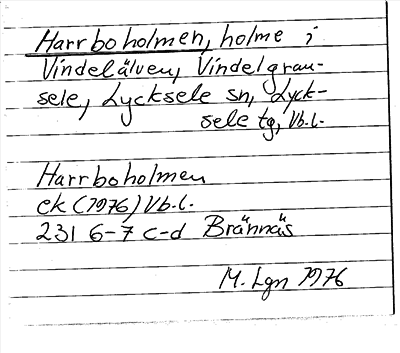 Harrboholmen, holme i
Vindelälven, Vindelgran-
sele, Lycksele sn, Lyck-
sele tg, Vb.l.
Harrboholmen
ek (1976) Vb.l.
231 6-7 c-d Brännäs
M. Lgn 1976